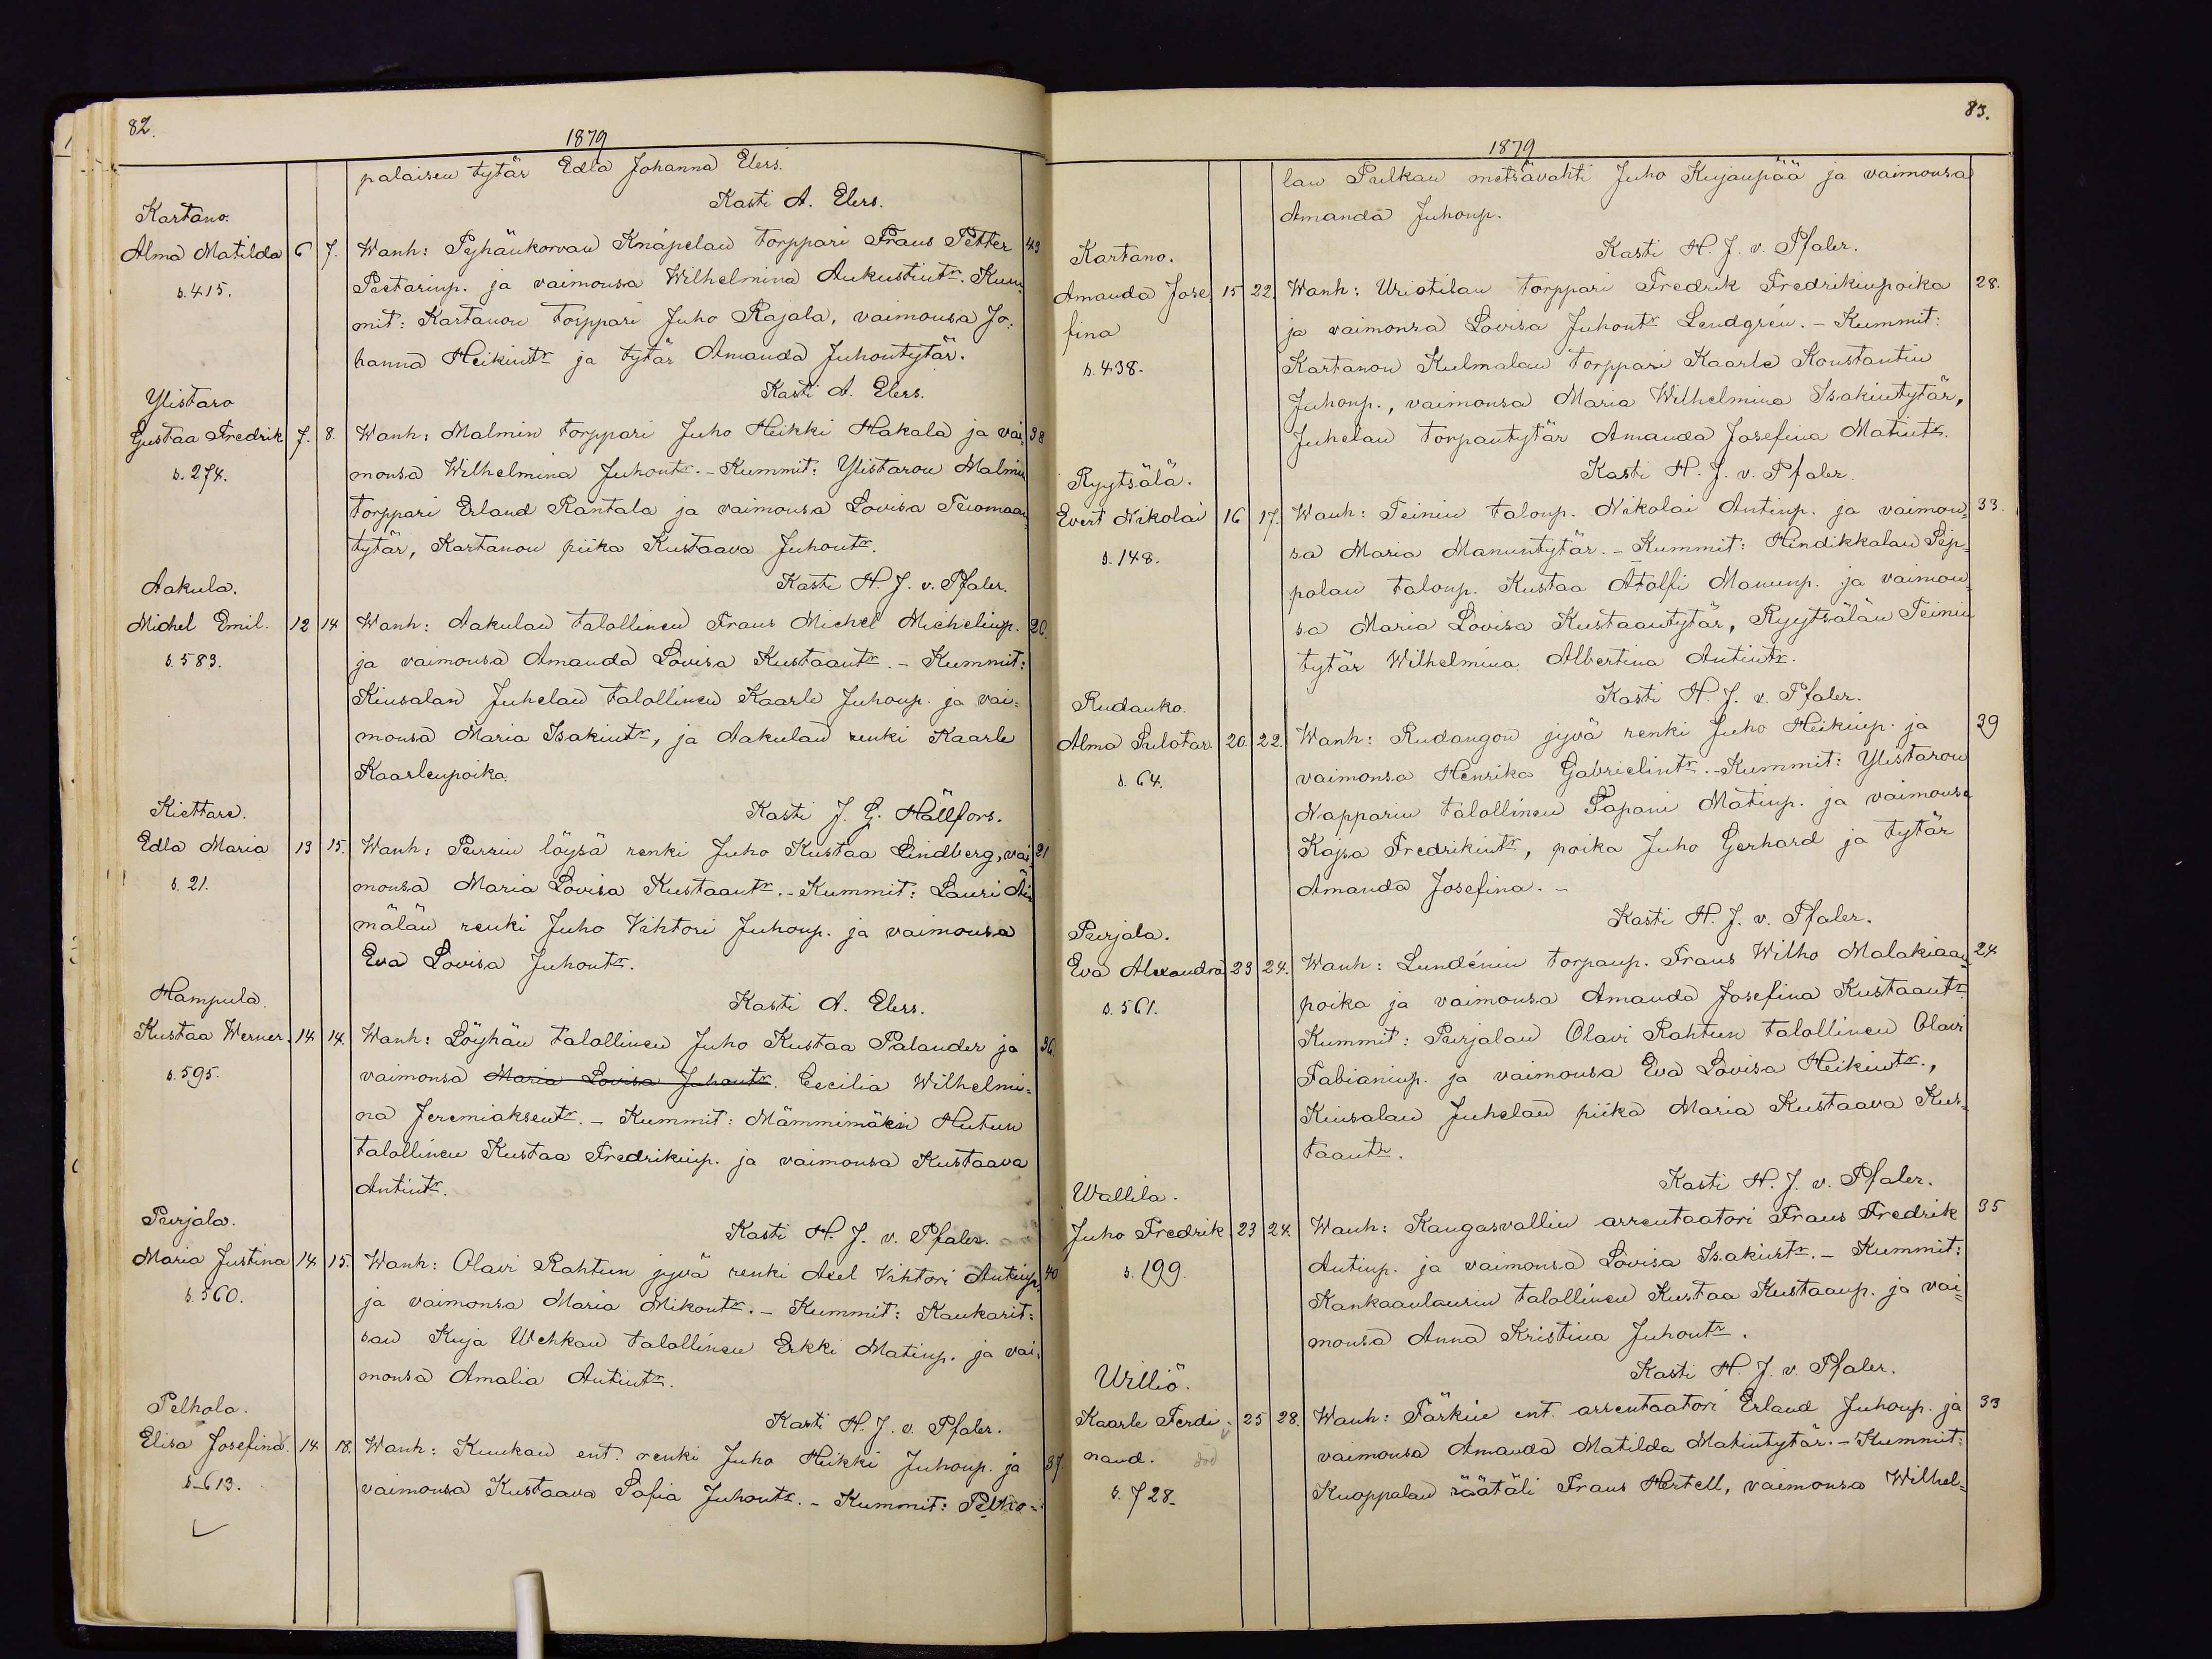 82.
1879
palaisen tytär Edla Johanna Elers.
Kasti A. Elers.
Kartano.
Alma Matilda 6 7. Wanh: Pyhänkorvan Knäpelän torppari Frans Petter 43
s. 415. Pietarinp. ja vaimonsa Wilhelmina Aukustintr. Kum-
mit: Kartanon torppari Juho Rajala, vaimonsa Jo-
hanna Heikintr ja tytär Amanda Juhontytär.
Kasti A. Elers.
Ylistaro
Gustaa Fredrik 7. 8. Wanh: Malmin torppari Juho Heikki Hakala ja vai- 38
s. 274. monsa Wilhelmina Juhontr. - Kummit: Ylistaron Malmin
torppari Erland Rantala ja vaimonsa Lovisa Tuomaan-
tytär, Kartanon piika Kustaava Juhontr.
Kasti H. J. v. Pfaler.
Aakula.
Michel Emil. 12 14 Wanh: Aakulan talollinen Frans Michel Michelinp. 20.
s. 583. ja vaimonsa Amanda Lovisa Kustaantr. - Kummit:
Kiusalan Juhelan talollinen Kaarle Juhonp. ja vai=
monsa Maria Isakintr, ja Aakulan renki Kaarle
Kaarlenpoika.
Kasti J. G. Hällfors.
Kiettare.
Edla Maria 13 15. Wanh: Purrin löysä renki Juho Kustaa Lindberg, vai- 21
s. 21. monsa Maria Lovisa Kustaantr. - Kummit: Lauri Äi-
mälän renki Juho Vihtori Juhonp. ja vaimonsa
Eva Lovisa Juhontr.
Kasti A. Elers.
Hampula.
Kustaa Werner. 14 14. Wanh: Löyhän talollinen Juho Kustaa Palander ja 36.
s. 595. vaimonsa Maria Lovisa Juhontr. Cecilia Wilhelmi=
na Jeremiaksentr. - Kummit: Mämmimäen Hutun
talollinen Kustaa Fredrikinp. ja vaimonsa Kustaava
Antintr.
Kasti H. J. v. Pfaler.
Purjala.
Maria Justina 14 15. Wanh: Olavi Rahtun jyvä renki Axel Vihtori Antinp. 40
s. 560. ja vaimonsa Maria Mikontr. - Kummit: Kaukarit=
san Kuja Uchkan talollinen Erkki Matinp. ja vai-
monsa Amalia Antintr.
Kasti H. J. v. Pfaler.
Pelhola.
Elisa Josefina. 14 18. Wanh: Kuukan ent. renki Juho Heikki Juhonp. ja 37
s. 613. vaimonsa Kustaava Sofia Juhontr. - Kummit: Pelho=
83.
1879
lan Pulkan metsävahti Juho Kujanpää ja vaimonsa
Amanda Juhonp.
Kasti H. J. v. Pfaler.
Kartano.
Amanda Jose 15 22. Wanh: Uristilan torppari Fredrik Fredrikinpoika 28.
fina ja vaimonsa Lovisa Juhontr Lendgrén. - Kummit:
s. 438. Kartanon Kulmalan torppari Kaarle Konstantin
Juhonp., vaimonsa Maria Wilhelmina Isakintytär,
Juhelan torpantytär Amanda Josefina Matintr.
Kasti H. J. v. Pfaler.
Ryytsälä.
Evert Nikolai 16 17. Wanh: Teinin talonp. Nikolai Antinp. ja vaimon= 33.
s. 148. sa Maria Manuntytär. - Kummit: Hindikkalan Sep=
polan talonp. Kustaa Atolfi Manunp. ja vaimon
sa Maria Lovisa Kustaantytär, Ryytsälän Teinin
tytär Wilhelmina Albertina Antintr.
Kasti H. J. v. Pfaler.
Rudanko.
Alma Sulotar. 20. 22. Wanh: Rudangon jyvä renki Juho Heikinp. ja 39
s. 64. vaimonsa Henrika Gabrielintr. - Kummit: Ylistaron
Napparin talollinen Tapani Matinp. ja vaimonsa
Kajsa Fredrikintr, poika Juho Gerhard ja tytär
Amanda Josefina. -
Kasti H. J. v. Pfaler.
Purjala.
Eva Alexandra 23 24. Wanh: Lundénin torpanp. Frans Wilho Malakiaan 24
s. 561. poika ja vaimonsa Amanda Josefina Kustaantr.
Kummit: Purjalan Olavi Rahtun talollinen Olavi
Fabianinp. ja vaimonsa Eva Lovisa Heikintr.,
Kiusalan Juhelan piika Maria Kustaava Kus-
taantr.
Kasti H. J. v. Pfaler.
Wallila.
Juho Fredrik 23 24. Wanh: Kangasvallin arrentaatori Frans Fredrik 35
s. 199. Antinp. ja vaimonsa Lovisa Isakintr. - Kummit:
Kankaanlaurin talollinen Kustaa Kustaanp. ja vai=
monsa Anna Kristina Juhontr.
Kasti H. J. v. Pfaler.
Williö.
Kaarle Ferdi- 25 28. Wanh: Tärkin ent. arrentaatori Erland Juhonp. ja 33
nand. död vaimonsa Amanda Matilda Matintytär. - Kummit:
s. 728. Kuoppalan räätäli Frans Hertell, vaimonsa Wilhel=